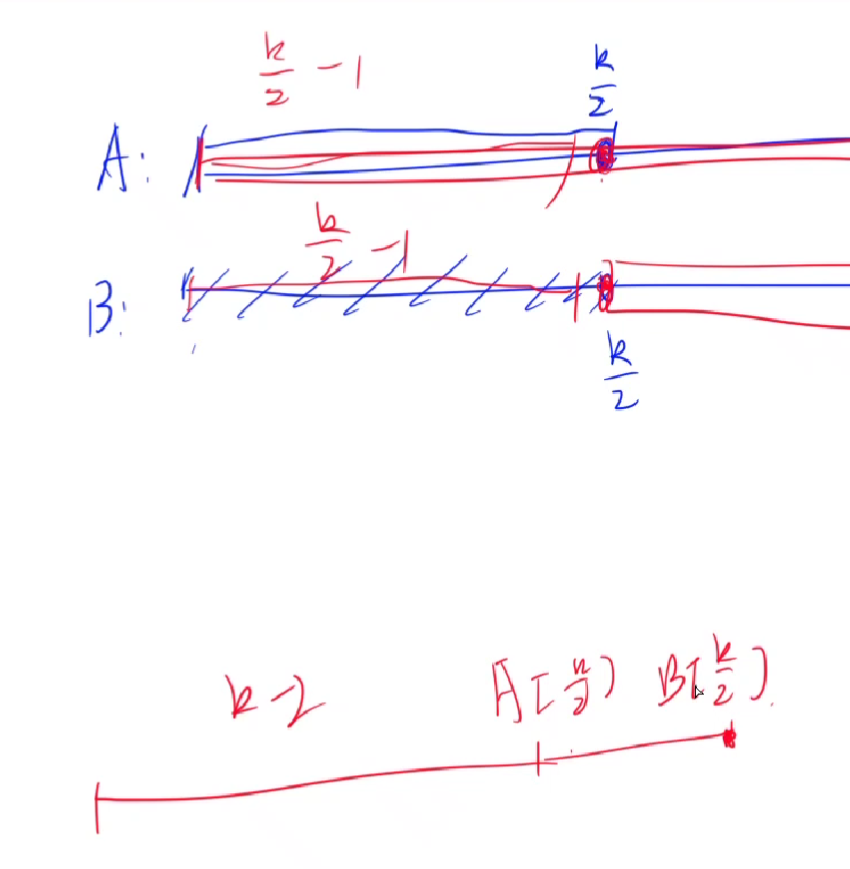 k/2 - 1
k/2
A:
k/2 - 1
B:
k/2
k-2 A[k/2] B[k/2].